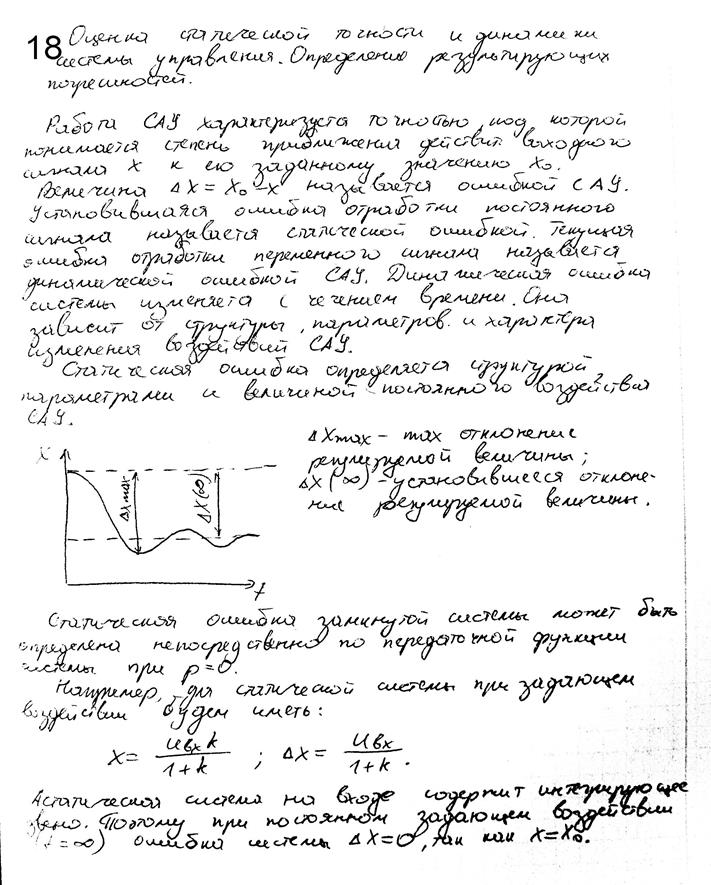 18 Оценка статической точности и динамики
системы управления. Определение результирующих
погрешностей.
Работа САУ характеризуется точностью, под которой
понимается степень приближения действит. выходного
сигнала X к его заданному значению X₀.
Величина ΔX = X₀ - X называется ошибкой САУ.
Установившаяся ошибка отработки постоянного
сигнала называется статической ошибкой. Текущая
ошибка отработки переменного сигнала называется
динамической ошибкой САУ. Динамическая ошибка
системы изменяется с течением времени. Она
зависит от структуры, параметров и характера
изменения воздействий САУ.
Статическая ошибка определяется структурой,
параметрами и величиной постоянного воздействия
САУ.
X
ΔXmax
ΔX(∞)
t
ΔXmax – max отклонение
регулируемой величины;
ΔX(∞) – установившееся отклоне-
ние регулируемой величины.
Статическая ошибка замкнутой системы может быть
определена непосредственно по передаточной функции
системы при p=0.
Например, для статической системы при задающем
воздействии будем иметь:
X = Uвх k / 1+k ; ΔX = Uвх / 1+k .
Астатическая система на входе содержит интегрирующее
звено. Поэтому при постоянном задающем воздействии
(t=∞) ошибка системы ΔX=0, так как X=X₀.